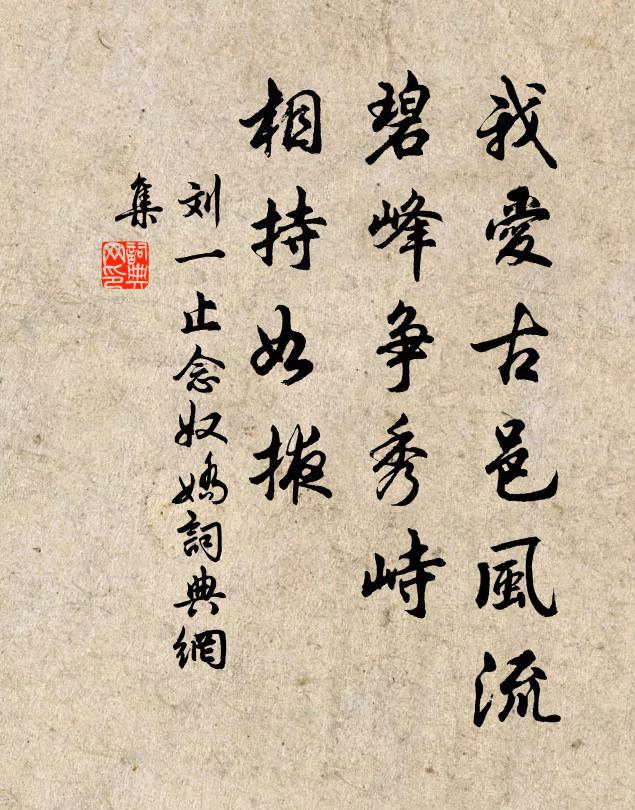 我愛古邑風流
碧峰争秀峙
相持如掖
刘一止念奴嬌詞典網
集
詞典
网印